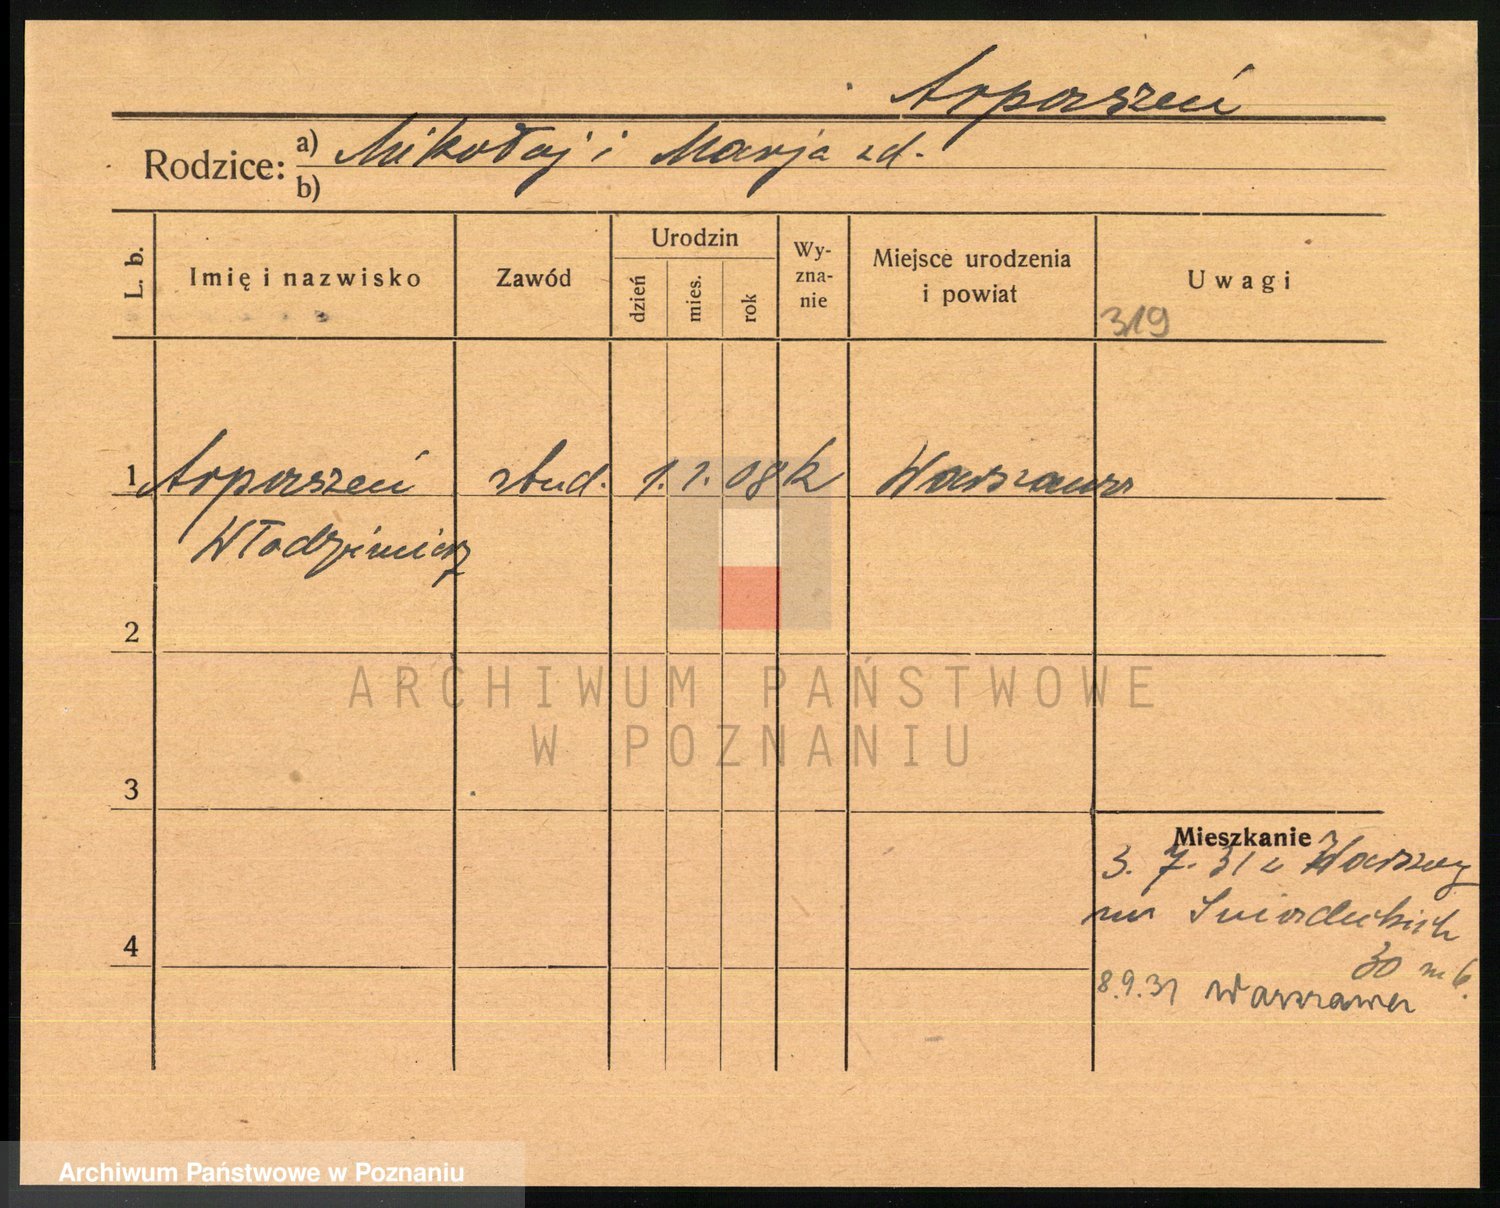 Arpaszeń
Rodzice: a) Mikołaj i Marja zd.
b)
L. b.
Imię i nazwisko
Zawód
Urodzin
dzień
mies.
rok
Wy-
zna-
nie
Miejsce urodzenia
i powiat
Uwagi
319
1 Arpaszeń stud. 1. 1. 08 k Warszawa
Włodzimierz
2
ARCHIWUM PAŃSTWOWE
W POZNANIU
3
Mieszkanie
3. 7. 31 z Warszawy
Śniadeckich
30 m 6.
4
8.9.31 Warszawa
Archiwum Państwowe w Poznaniu